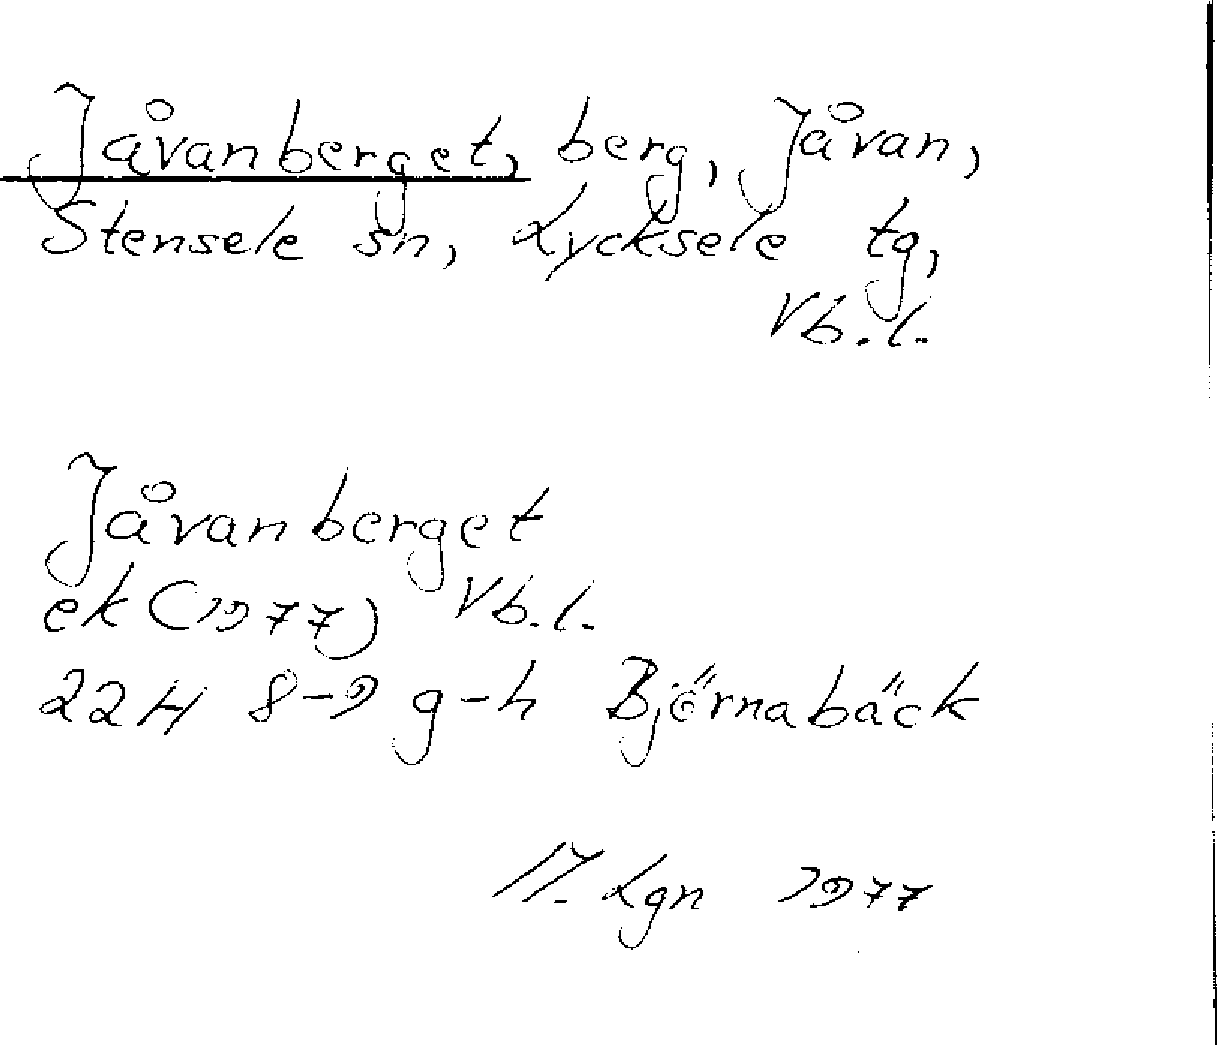 Jåvanberget, berg, Jåvan,
Stensele sn, Lycksele tg,
Vb.l.
Jåvanberget
ek (1977) Vb.l.
22H 8-9 g-h Björnabäck
Lgn 1977